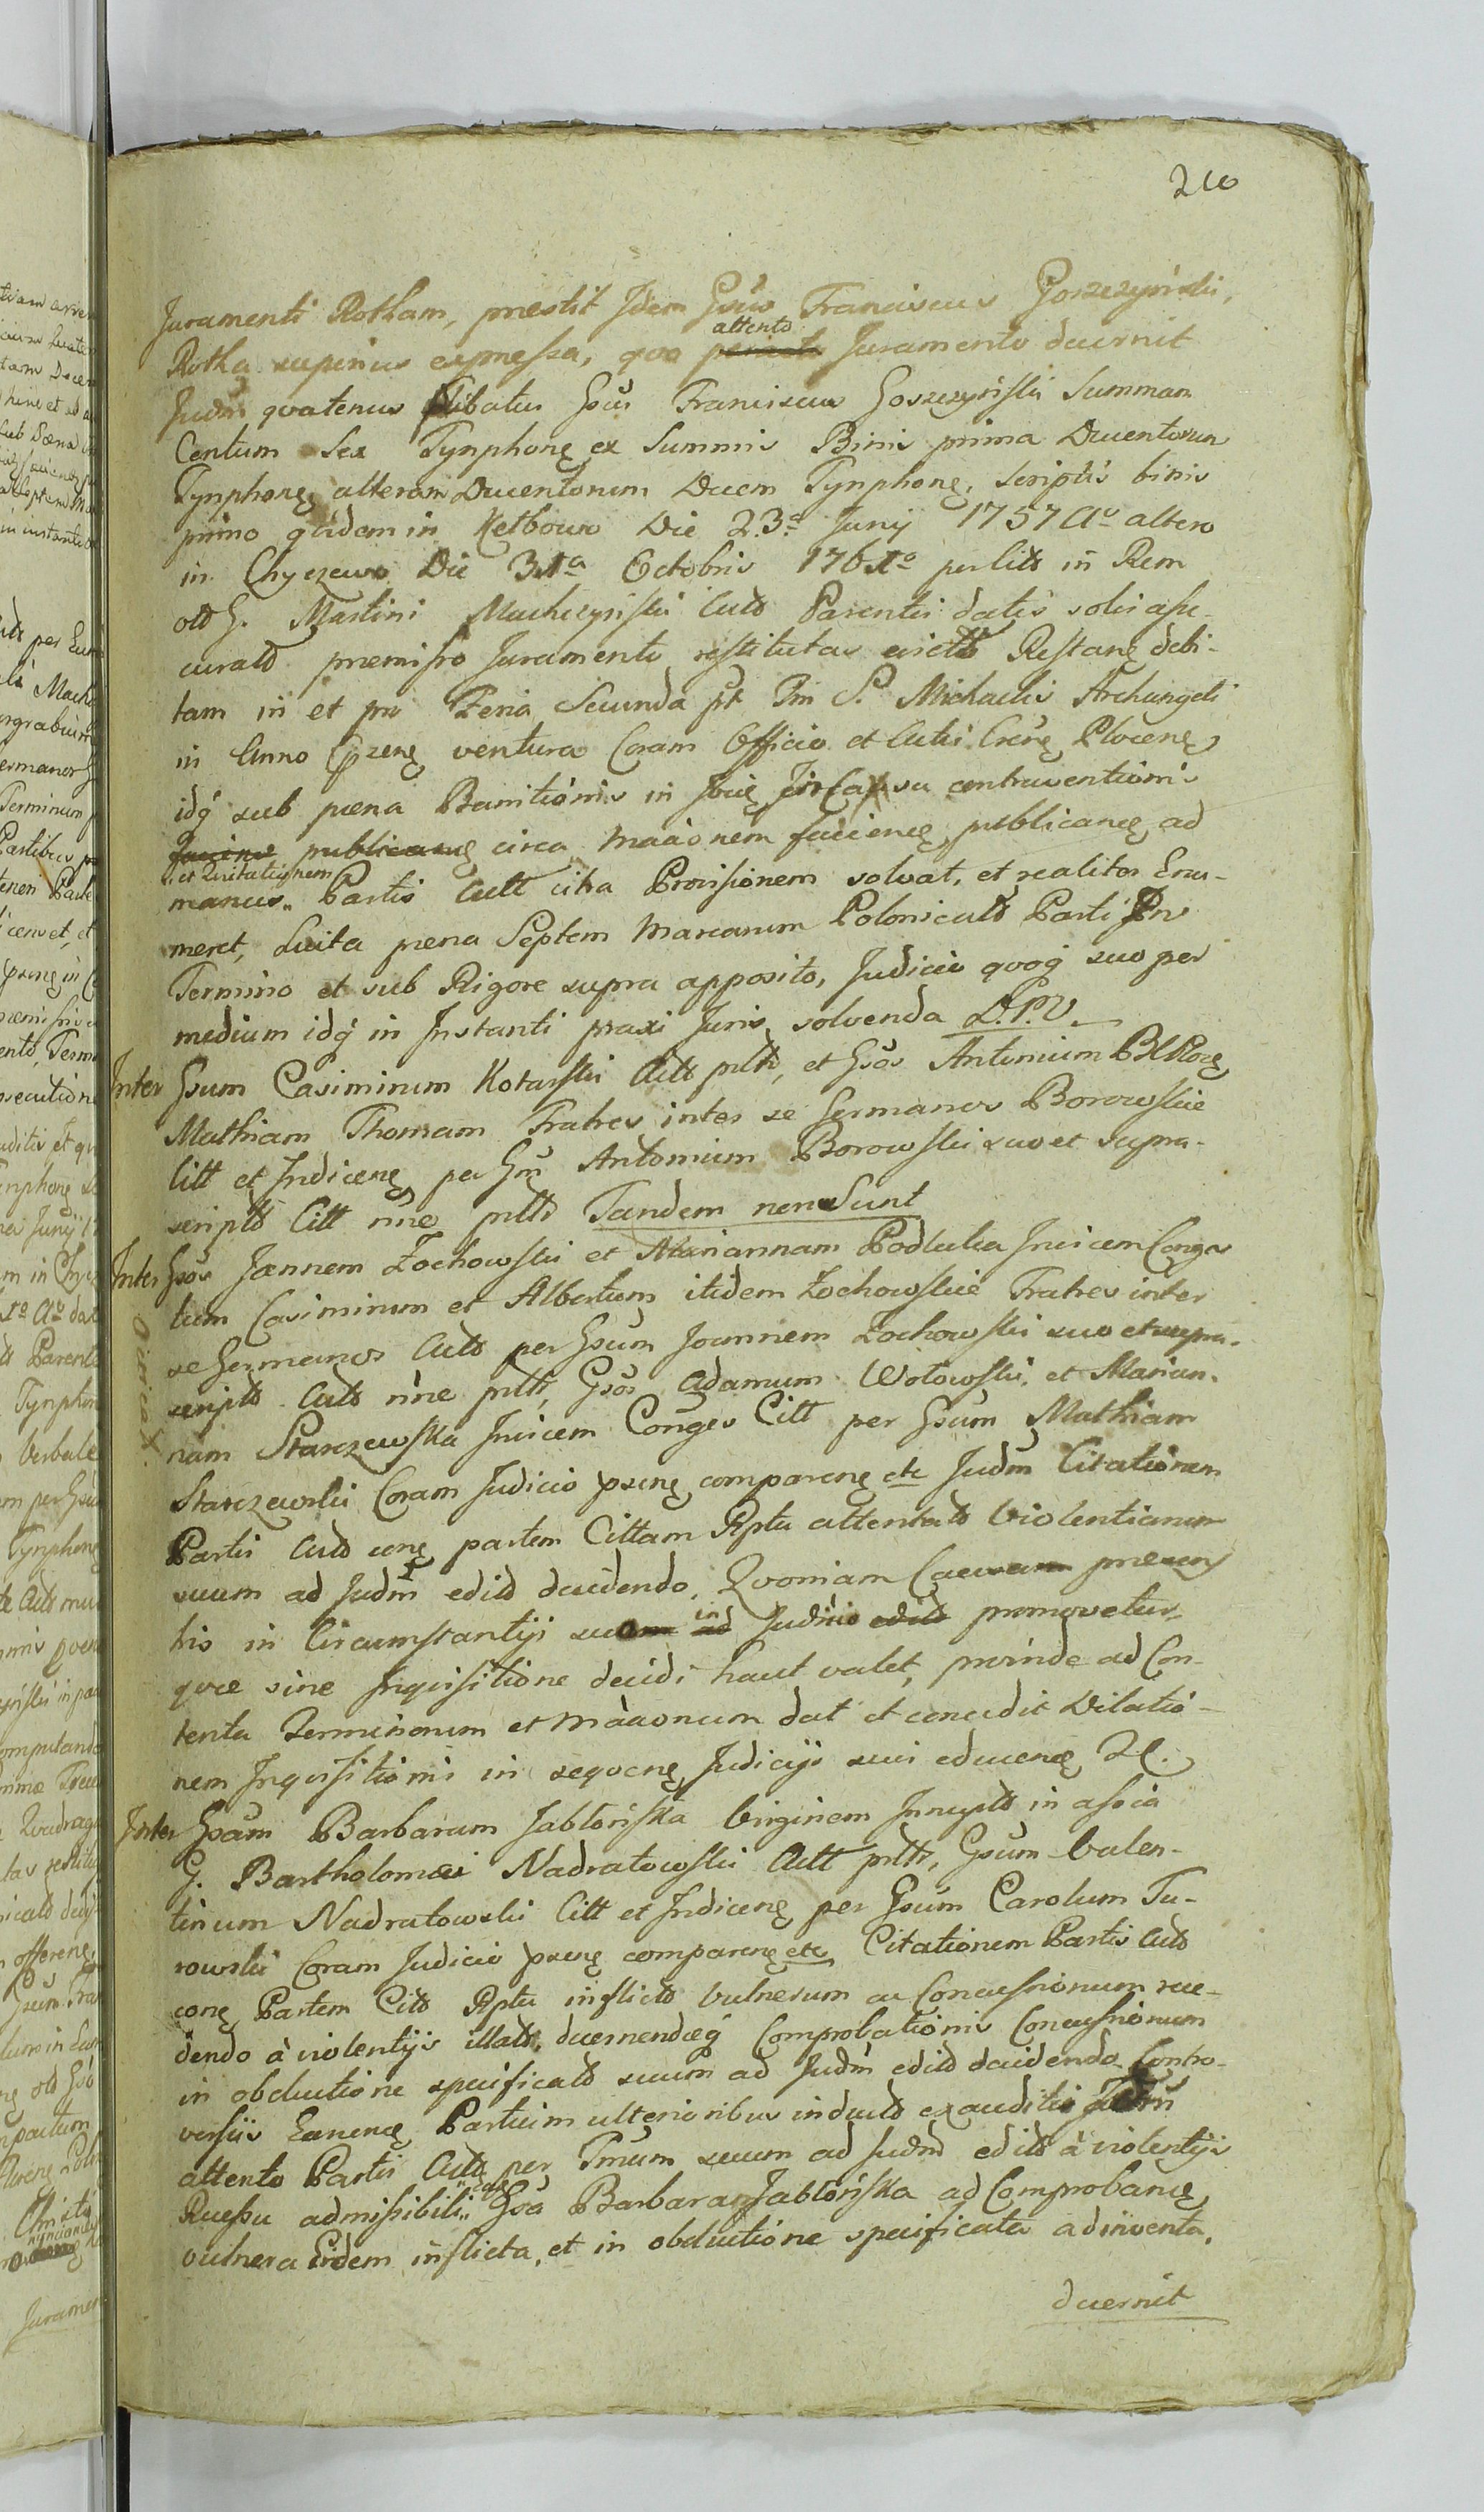 210
Juramenti Rotham, prestit Idem Gsus Franciscus Goszczynski,
attento
Rotha superius expressa, quo Juramento decernit
Judm quatenus plibatus Gsus Franciscus Goszczynski Summam
Centum Sex Tynphonę ex Summis Binis prima Ducentorum
Tynphonę altera Ducentorum Decem Tynphonę, Scriptis binis
primo qlidem in Die 23a Junij 1757 Ao altero
in Chyczewo Die 31a Octobris 1761o in Rem
old G. Martini Machczynski Actd Parentis datis solvi asse-
curatd premisso Juramento restitutas Restanę debi-
tam in et pro Feria Secunda pt Fm S. Michaelis Archangeli
in Anno pzenę ventura Coram Officio et Actis Plocenę
idq sub pœna Banitionis in Casu contraventionis
publicanę circa faciene, publicanę ad
et Quitationem
manus Partis Actt citra Provisionem solvat, et realiter Enu-
meret, Luita pœna Septem Marcarum Polonicald Parti
Termino et sub Rigore supra apposito, Judicio qvoq suo per
medium idq in Instanti praxi Juris solvenda D.P.V.
Inter Gsum Casimirum Kotarski Actt pltt, et Gsos Antonium
Mathiam Thomam Fratres inter se Germanos Borowskie
Citt et Indicenę per Gsm Antonium Borowski suo et supra-
scriptd Citt nne pltt Tandem non Sunt
Inter Gsos Joannem Zochowski et Mariannam Podlecka Invicem Conges
tum Casimirum et Albertum itidem Zochowskie Fratres inter
se Germanos Actd per Gsum Joannem Zochowski suo et supra-
scriptd Actd nne pltt, Gsos Adamum Wotowski et Marian-
nam Starczewska Invicem Conges Citt per Gsum Mathiam
Starczewski Coram Judicio pxenę comparenę etc Judm Citationem
Partis Actd conę partem Cittam Rptu attentatd Violentiarum
suum ad Judm editd decidendo, Quoniam Causa presens
his in Circumstantijs suo in Judicio promovetur
qvæ sine Inqvisitione decidi haut valet, proinde ad Con-
tenta Terminorum et dat et concedit Dilatio-
nem Inqvisitionis in seqvenę Judicijs sui educenę
Inter Gsam Barbaram Jabłońska Virginem Innuptd in assia
G. Bartholomæi Nadratowski Actt pltt, Gsum Valen-
tinum Nadratowski Citt et Indicenę per Gsum Carolum Tu-
rowski Coram Judicio pxenę comparenę etc Citationem Partis Actd
conę Partem Citd Rptu inflictd Vulnerum ac Concussionum rece-
dendo à violentijs illatd, decernendæq Comprobationis Concussionum
in obductione specificatd suum ad Judm editd decidendo Contro-
versiis Earumę Partium ulterioribus inductd exauditis Judm
attento Partis Actd per Tmum suum ad Judm editd à violentijs
Recessu admissibili Gsa Barbara Jabłońska ad Comprobanę
vulnera Eidem inflicta, et in obductione specificata adinventa,
decernit